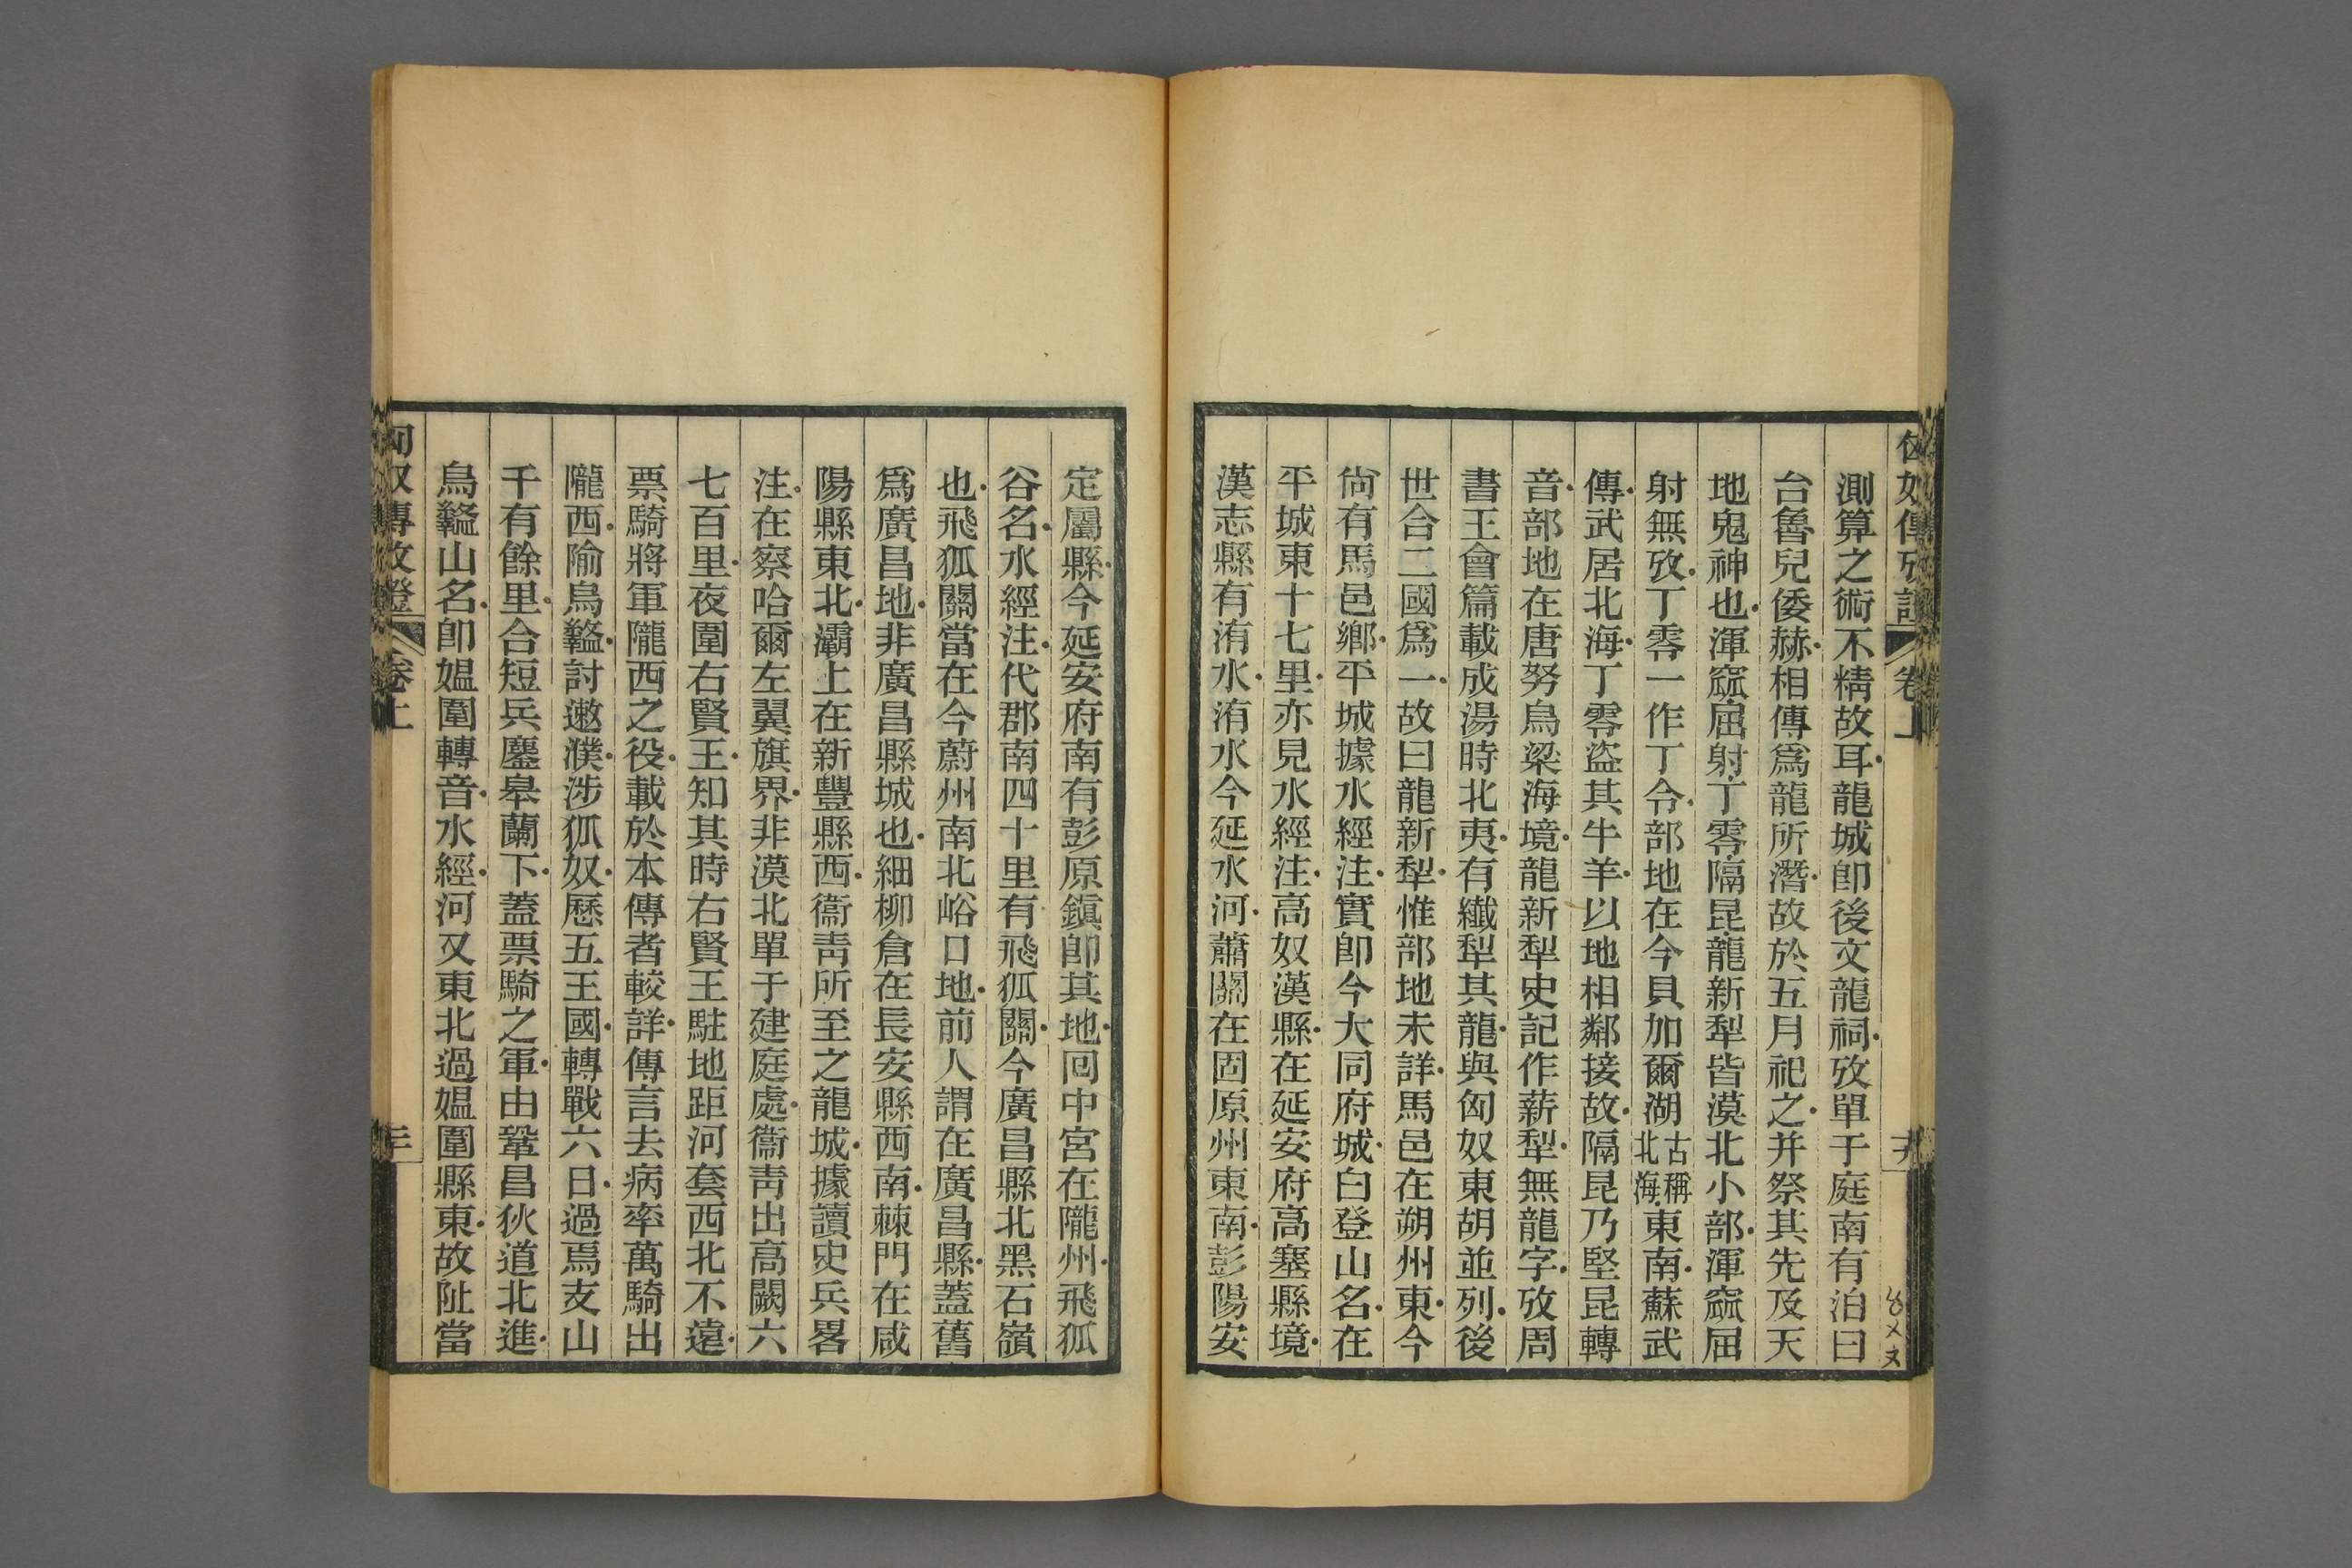 測算之術不精故耳龍城卽後文龍祠攷單于庭南有泊曰
台魯兒倭赫相傳爲龍所潛故於五月祀之并祭其先及天
地鬼神也渾窳屈射丁零隔昆龍新犁皆漠北小部渾窳屈
射無攷丁零一作丁令部地在今貝加爾湖古稱北海東南蘇武
傳武居北海丁零盜其牛羊以地相鄰接故隔昆乃堅昆轉
音部地在唐努烏梁海境龍新犁史記作薪犁無龍字攷周
書王會篇載成湯時北夷有纖犁其龍與匈奴東胡並列後
世合二國爲一故曰龍新犁惟部地未詳馬邑在朔州東今
尙有馬邑鄉平城據水經注實卽今大同府城白登山名在
平城東十七里亦見水經注高奴漢縣在延安府高塞縣境
漢志縣有洧水洧水今延水河蕭關在固原州東南彭陽安
定屬縣今延安府南有彭原鎭卽其地回中宮在隴州飛狐
谷名水經注代郡南四十里有飛狐關今廣昌縣北黑石嶺
也飛狐關當在今蔚州南北峪口地前人謂在廣昌縣蓋舊
爲廣昌地非廣昌縣城也細柳倉在長安縣西南棘門在咸
陽縣東北灞上在新豐縣西衞靑所至之龍城據讀史兵畧
注在察哈爾左翼旗界非漠北單于建庭處衞靑出高闕六
七百里夜圍右賢王知其時右賢王駐地距河套西北不遠
票騎將軍隴西之役載於本傳者較詳傳言去病率萬騎出
隴西隃烏盭討遬濮涉狐奴歷五王國轉戰六日過焉支山
千有餘里合短兵鏖皋蘭下蓋票騎之軍由鞏昌狄道北進
烏盭山名卽媼圍轉音水經河又東北過媼圍縣東故阯當
卷上